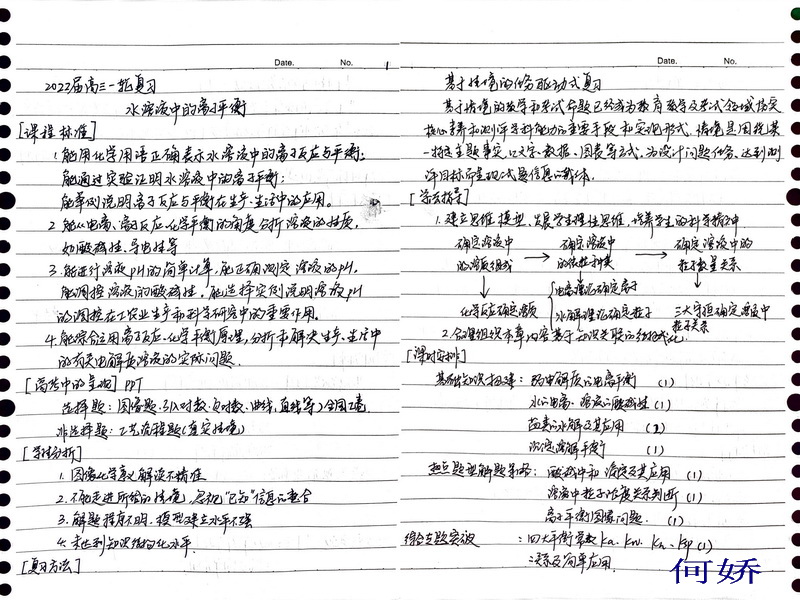 Date. No.
2022届高三一轮复习
水溶液中的离子平衡
[课程标准]
1.能用化学用语正确表示水溶液中的离子反应与平衡;
能通过实验证明水溶液中的离子平衡;
能举例说明离子反应与平衡在生产、生活中的应用。
2.能从电离、离子反应、化学平衡的角度分析溶液的性质,
如酸碱性、导电性等
3.能进行溶液pH的简单计算,能正确测定溶液的pH,
能调控溶液的酸碱性,能选择实例说明溶液pH
的调控在工农业生产和科学研究中的重要作用。
4.能综合运用离子反应、化学平衡原理,分析和解决生产、生活中
的有关电解质溶液的实际问题.
[高考中的呈现] PPT
选择题:图像题.(对数、负对数、曲线,直线等)全国I卷
非选择题:工艺流程题(真实情境)
[学情分析]
1.图像化学意义解读不精准
2.不能走进所给的情境,忽视"已知"信息的整合
3.解题程序不明,模型建立水平不强
4.未达到知识结构化水平.
[复习方法]
Date. No.
基于情境的任务驱动式复习
基于情境的教学和考试命题已经成为教育教学及考试领域落实
核心素养和测评学科能力的重要手段和实现形式,情境是围绕某
一特定主题事实,以文字、数据、图表等方式,为设计问题任务、达到测
评目标所呈现试题信息的载体.
[学法指导]
1.建立思维模型、发展学生理性思维,培养学生的科学精神
确定溶液中 → 确定溶液中 → 确定溶液中的
的溶质组成 的微粒种类 粒子数量关系
化学反应确定溶质 电离理论确定离子
水解理论确定粒子 三大守恒确定溶液中
粒子关系
2.合理组织本章内容基于知识关联的结构化.
[课时安排]
基础知识构建: 弱电解质的电离平衡 (1)
水的电离、溶液的酸碱性 (1)
盐类的水解及其应用 (2)
沉淀溶解平衡 (1)
热点题型解题策略: 酸碱中和滴定及其应用 (1)
溶液中粒子浓度关系判断 (1)
离子平衡图像问题. (1)
综合主题突破 :四大平衡常数Ka、Kw、Kh、Ksp (1)
之关系及简单应用.
何娇